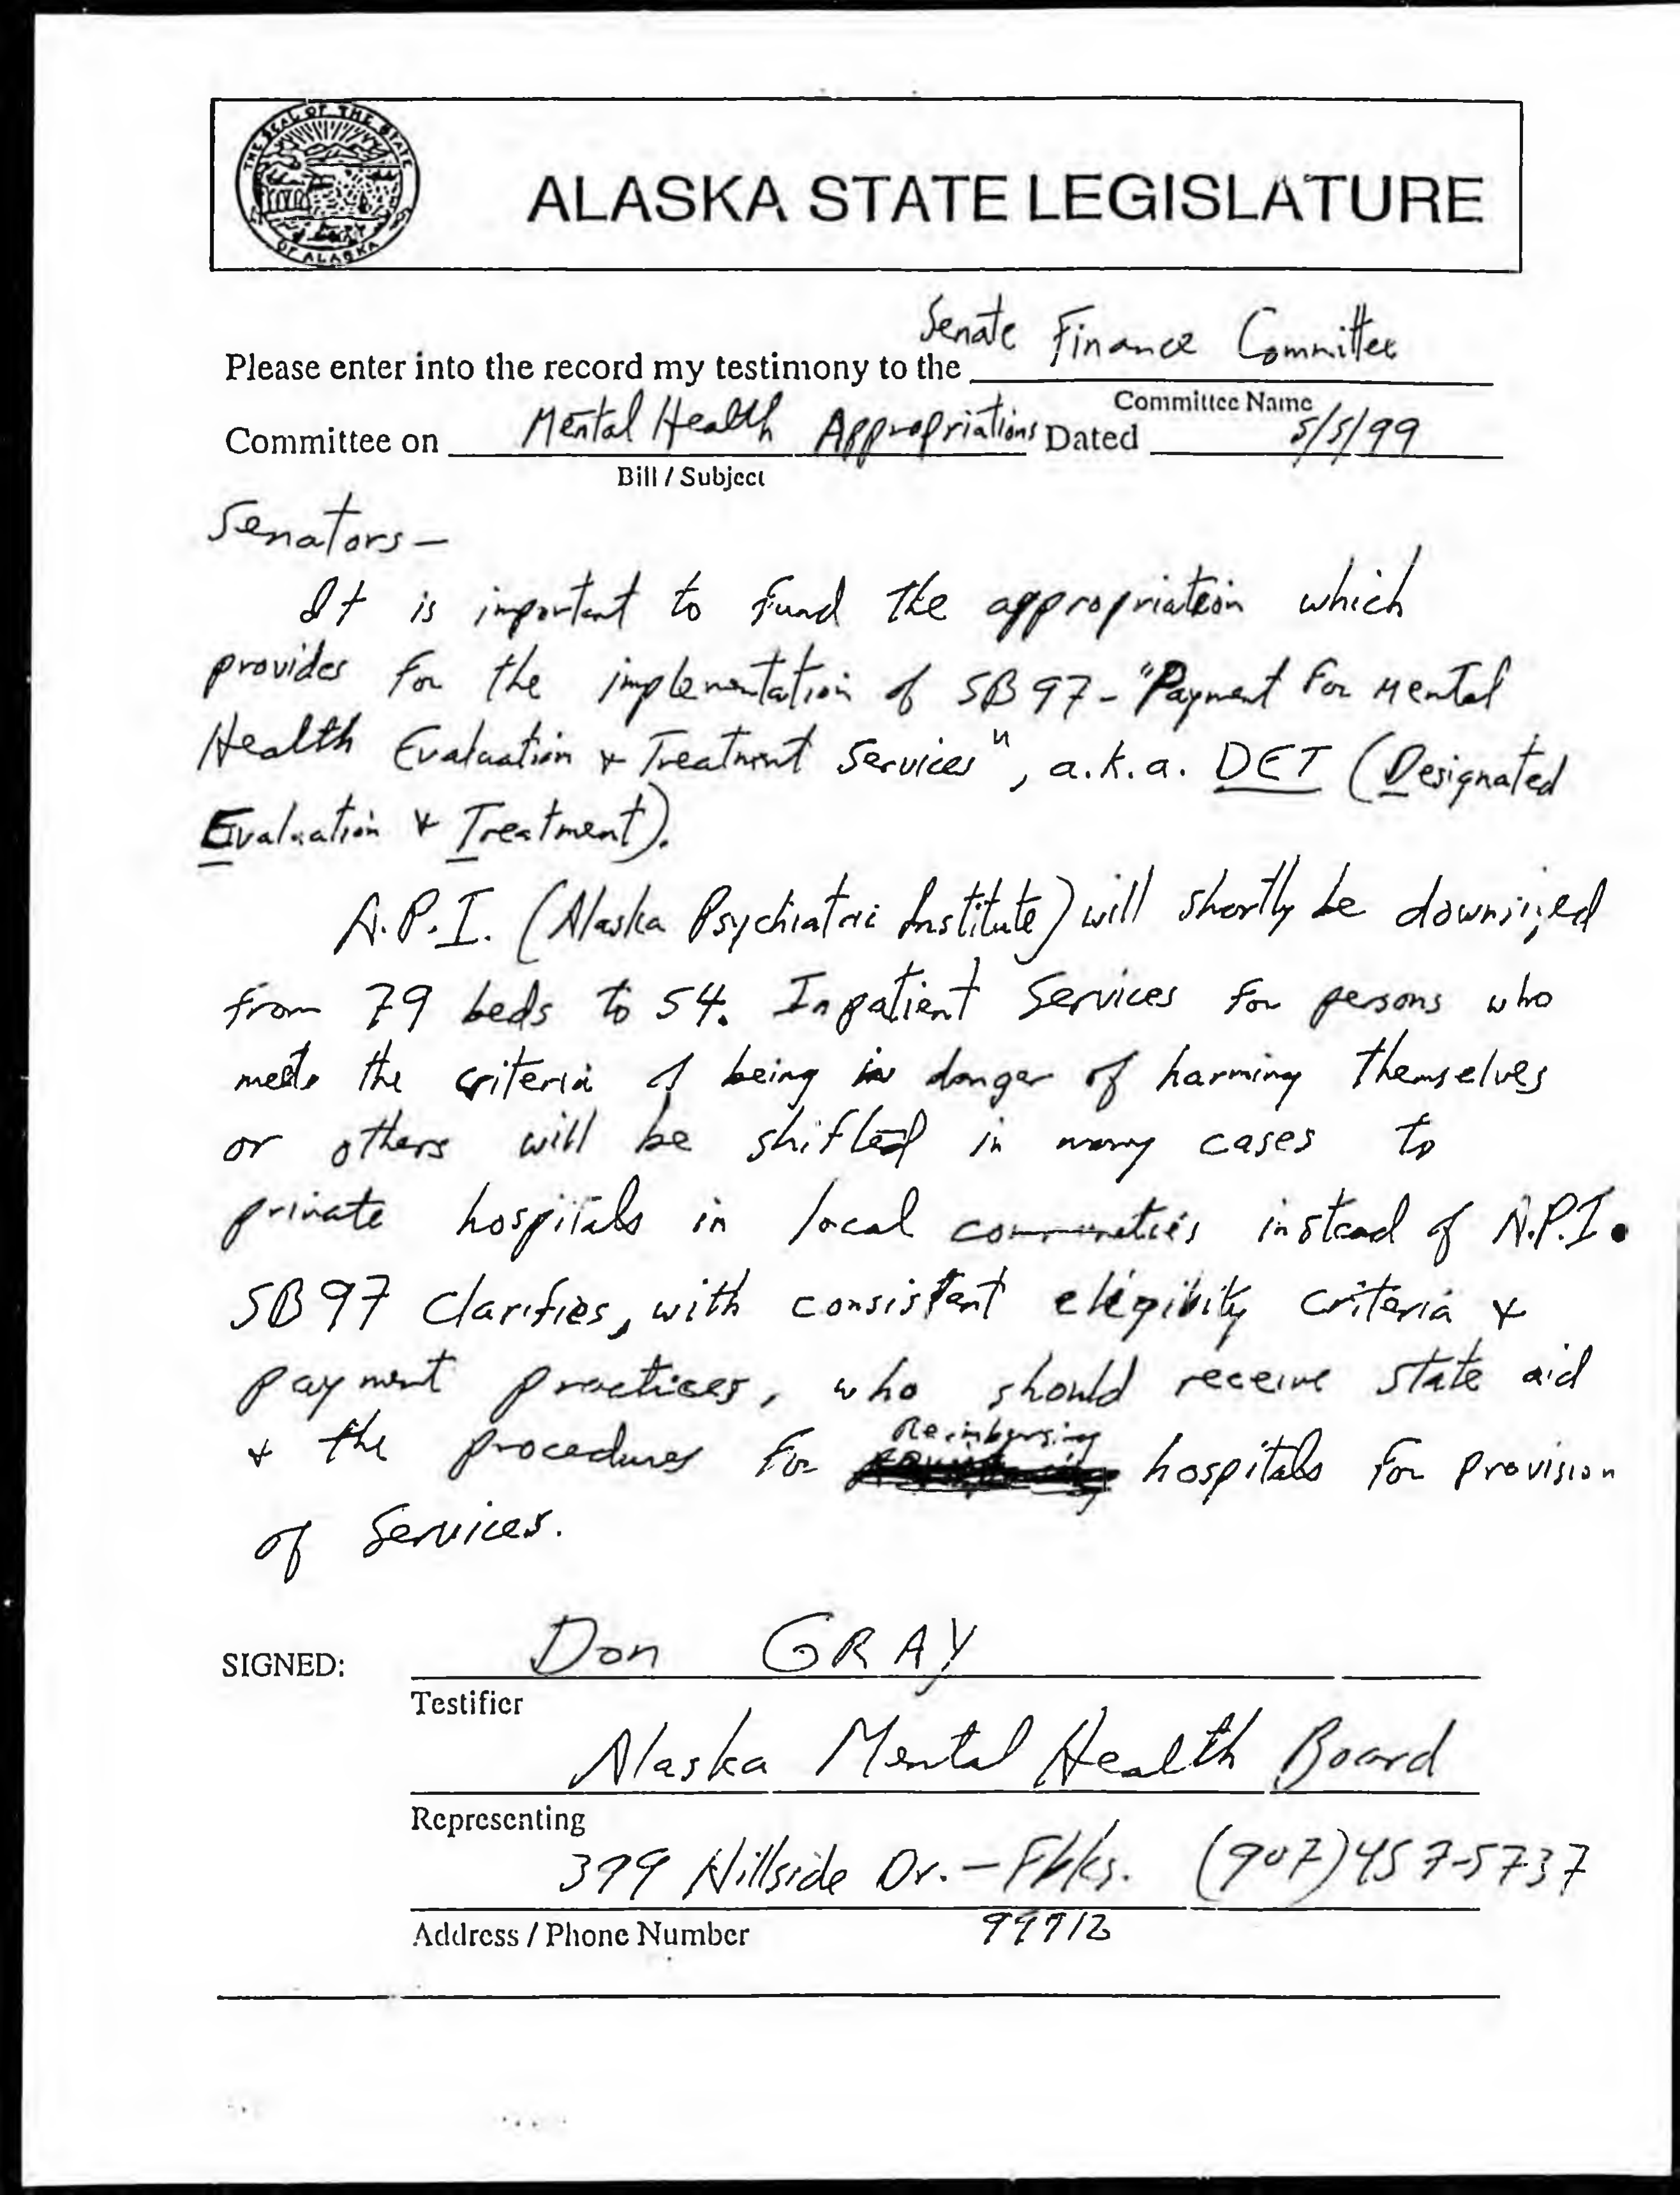 THE SEAL OF THE STATE OF ALASKA
ALASKA STATE LEGISLATURE
Please enter into the record my testimony to the Senate Finance Committee
Committee Name
Committee on Mental Health Appropriations Dated 5/5/99
Bill / Subject
Senators —
It is important to fund the appropriation which
provides for the implementation of SB 97 - "Payment for Mental
Health Evaluation & Treatment Services", a.k.a. DET (Designated
Evaluation & Treatment).
A.P.I. (Alaska Psychiatric Institute) will shortly be downsized
from 79 beds to 54. Inpatient Services for persons who
meet the criteria of being in danger of harming themselves
or others will be shifted in many cases to
private hospitals in local communities instead of A.P.I.
SB 97 clarifies, with consistent eligibility criteria &
payment practices, who should receive state aid
& the procedures for Reimbursing hospitals for provision
of Services.
SIGNED: Don GRAY
Testifier
Alaska Mental Health Board
Representing
399 Hillside Dr. — Fbks. (907) 457-5737
Address / Phone Number 99712